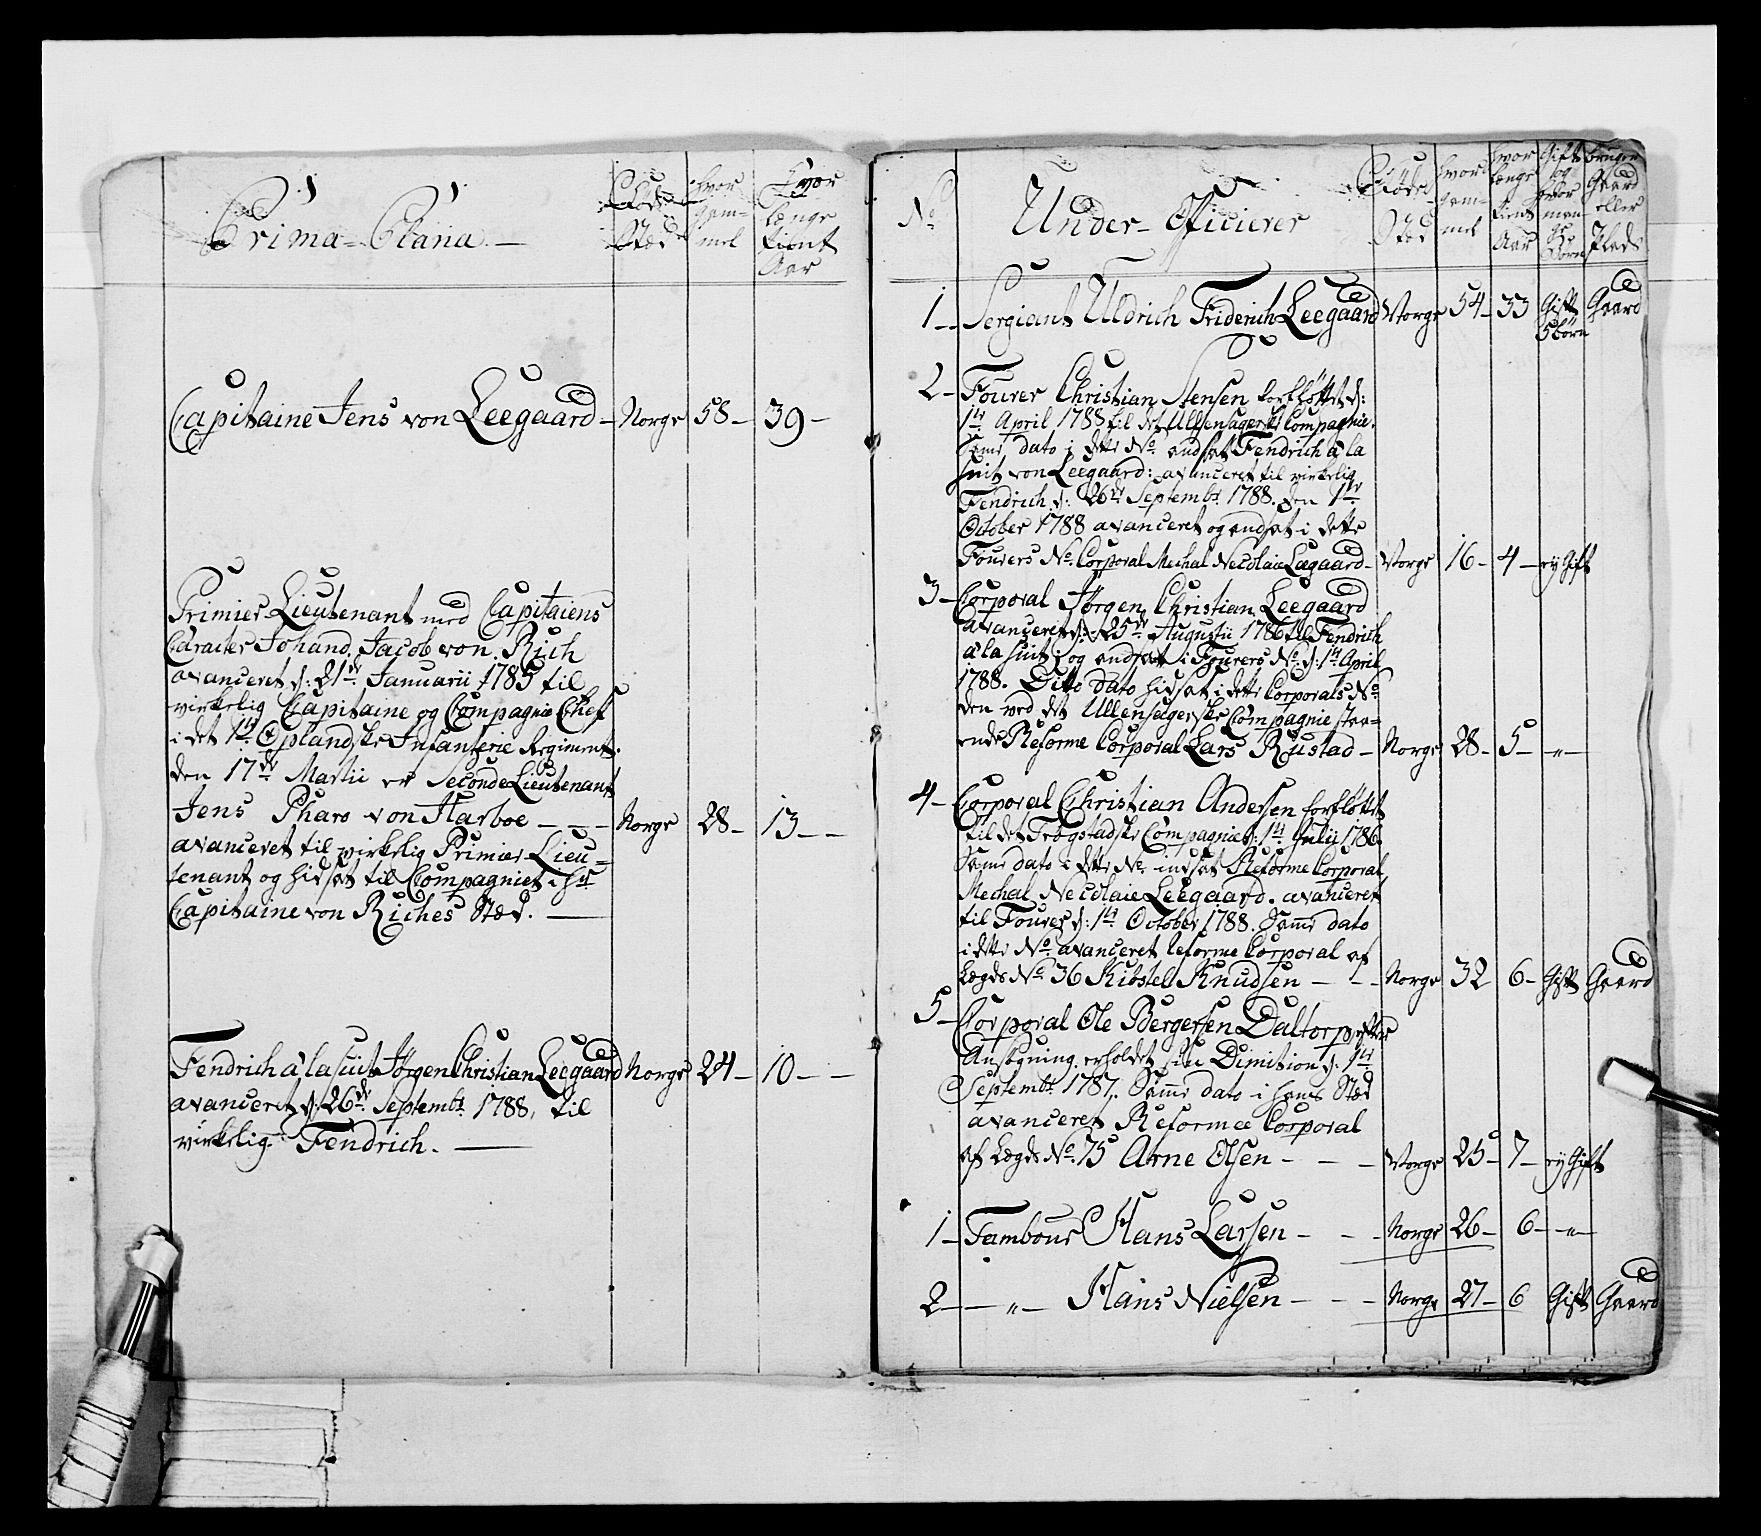 Prima-Plana. —
Føde
Stæd
hvor
Gam-
mel
Hvor
længe
tient
Aar
Capitaine Jens von Leegaard - Norge 58 - 39 -
Primier Lieutenant med Capitaiens
Caracter Johand Jacob von Rich
avanceret d: 21de Januarii 1785 til
virkelig Capitaine og Compagnie Chef
i det 1te Oplandske Infanterie Regiment.
den 17de Martii er Seconde Lieutenant
Jens Pharo von Harboe - - - Norge 28 - 13 - -
avanceret til virkelig Primier Lieu-
tenant og hidsat til Compagniet i Hr
Capitaine von Riches Stæd. —
Fendrich à la suit Jørgen Christian Leegaard Norge 24 - 10 - -
avanceret d: 26de Septembr 1788, til
virkelig Fendrich. —
No
Under-Officierer
Føde
Stæd
hvor
Gam-
mel
hvor
længe
tient
Aar
Gift
og
hvor
man-
ge
Børn
bruger
Gaard
eller
Plads
1 - Sergiant Uldrich Friderich Leegaard Norge 54 - 33 Gift Gaard
5 børn
2 - Fourer Christian Stensen forfløttet d:
1te April 1788 til det Ullensagerske Compagnie.
Samme dato i dette No. andsat Fendrich à la
suit von Leegaard: avanceret til virkelig
Fendrich d: 26de Septembr 1788. den 1te
October 1788 avanceret og andsat i dette
Fourers No. Corporal Mechal Necolaie Leegaard - Norge 16 - 4 - ey Gift
3 - Corporal Jørgen Christian Leegaard
avanceret d: 25de Augustii 1786 til Fendrich
à la suit; og andsat i Fourers No. d: 1te April
1788. Ditto dato hidsat i dette Corporals No.
den ved det Ullensagerske Compagnie staa-
ende Reforme Corporal Lars Rustad - Norge 28 - 5 - „ -
4 - Corporal Christian Andersen forfløttet
til det Trøgstadske Compagnie d: 1te Julii 1786.
Samme dato i dette No. indsat Reforme Corporal
Mechal Necolaie Leegaard. avanceret
til Fourer d: 1te October 1788. Samme dato
i dette No. avanceret Reforme Corporal af
Lægds No. 36 Kibstel Knudsen - - - Norge 32 6 - Gift Gaard
5 - Corporal Ole Bergersen Daltorp efter
Ansøgning erholdet sin Dimition d: 1te
Septembr 1787. Samme dato i hans Stæd
avanceret Reformee Corporal
af Lægds No. 75 Arne Olsen - - - Norge 25 - 7 - ey Gift
1 - Tambour Hans Larsen - - - Norge 26 - 6 - „ -
2 - - „ - Hans Nielsen - - - Norge 27 - 6 Gift Gaard